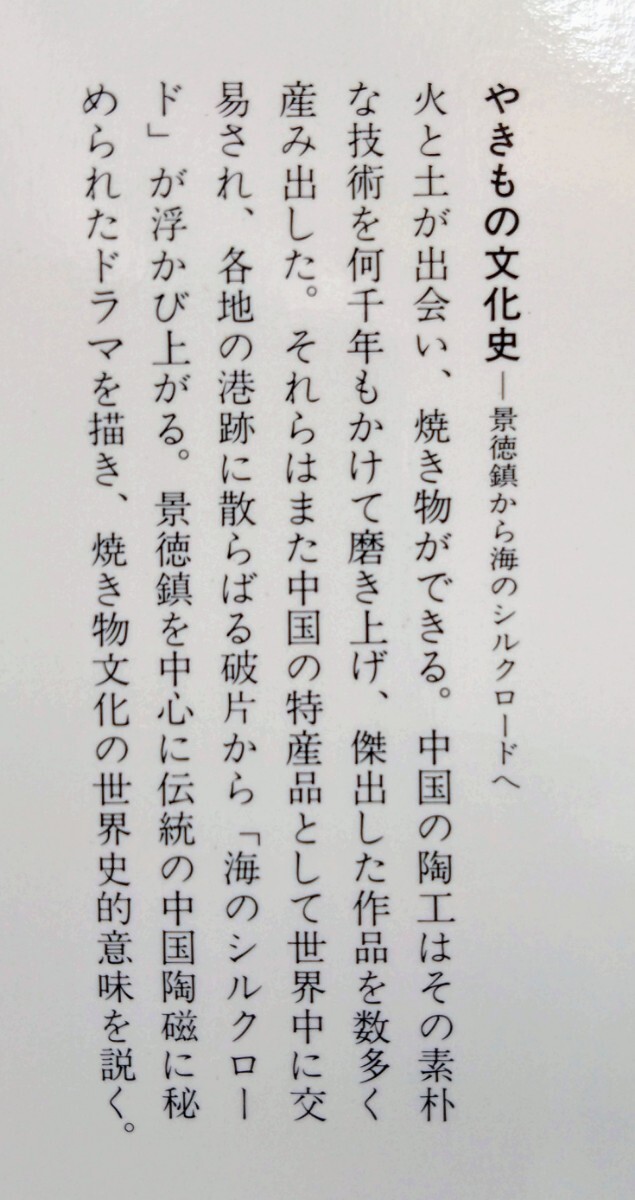 やきもの文化史―景徳鎮から海のシルクロードへ
火と土が出会い、焼き物ができる。中国の陶工はその素朴
な技術を何千年もかけて磨き上げ、傑出した作品を数多く
産み出した。それらはまた中国の特産品として世界中に交
易され、各地の港跡に散らばる破片から「海のシルクロー
ド」が浮かび上がる。景徳鎮を中心に伝統の中国陶磁に秘
められたドラマを描き、焼き物文化の世界史的意味を説く。